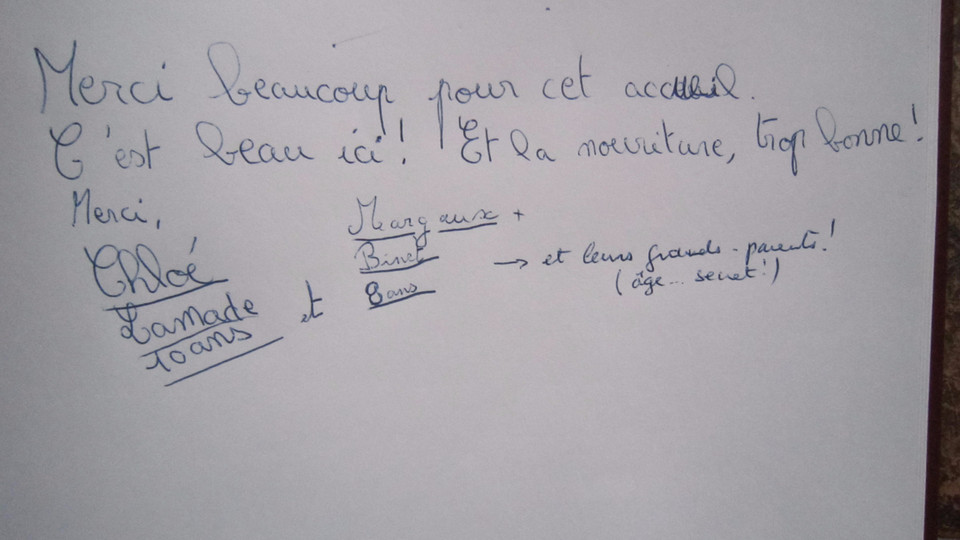 Merci beaucoup pour cet accueil.
C'est beau ici! Et la nourriture, trop bonne!
Merci,
Chloé
Lamade
10ans
et
Margaux +
Binet
8ans
→ et leurs grands-parents!
(âge... secret!)